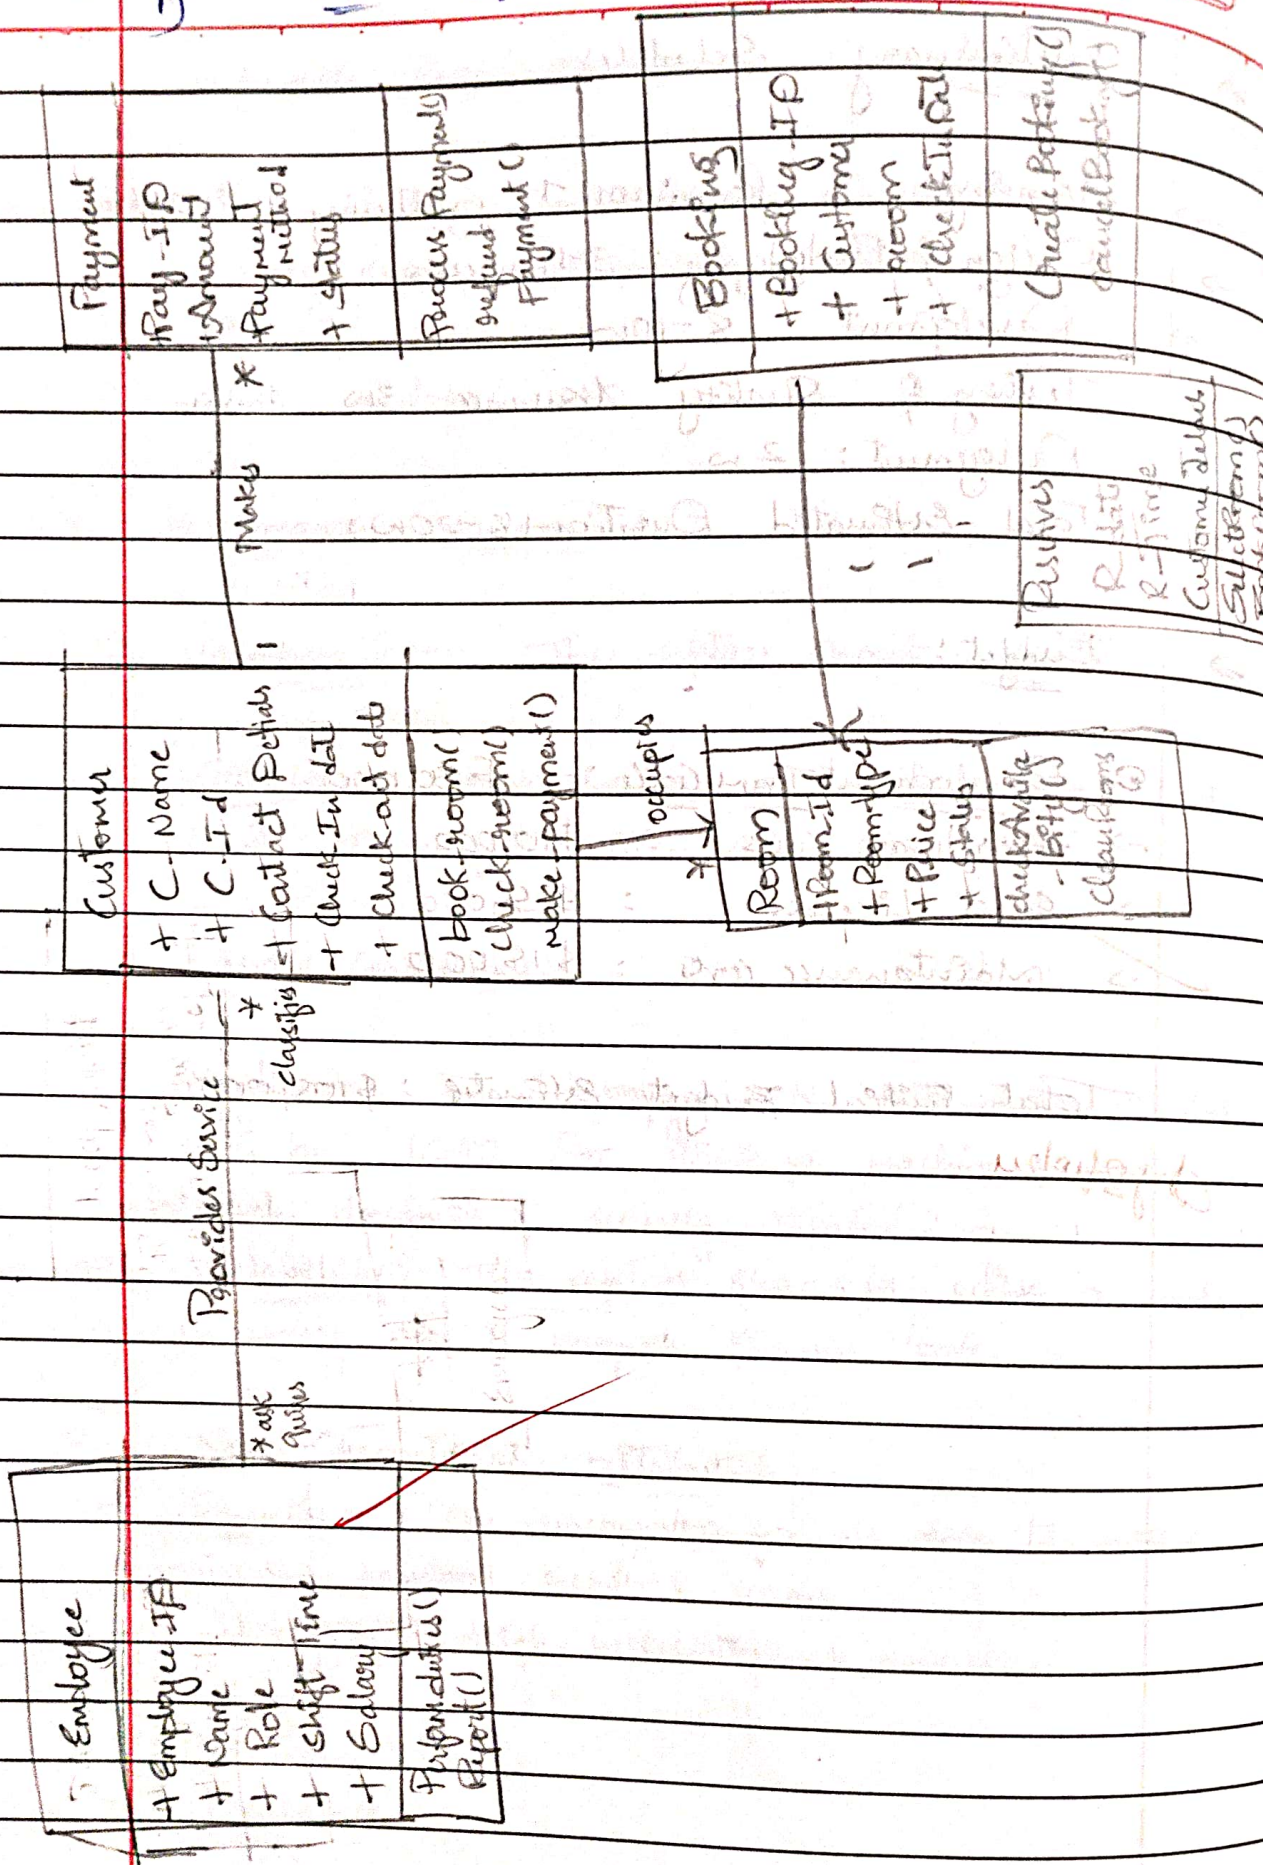 Employee
+ Employee-ID
+ Name
+ Role
+ Shift-Time
+ Salary
Report()
Provides Service
* ask
* classifies
Customer
+ C-Name
+ C-Id
+ Contact Details
+ Check-In date
+ Checkout date
book-room()
check-room()
make-payment()
1
Makes
*
Payment
+Pay-ID
+Amount
+Payment
Method
+ Status
Process Payment()
refund
Payment()
occupies
*
Room
+Room-Id
+Room type
+ Price
+ Status
checkAvaila
-bility()
Booking
+Booking-ID
+ Customer
+ room
+ CheckInDate
CreateBooking()
cancelBooking()
R-Time